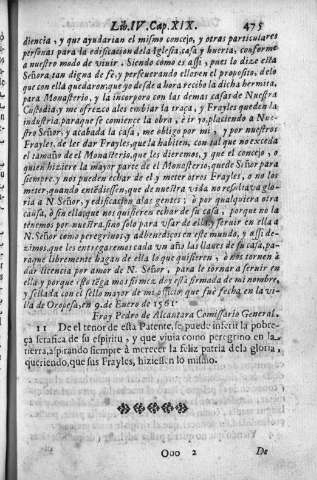 Lib. IV. Cap. XIX. 475
diencia, y que ayudarian el mismo concejo, y otras particulares
personas para la edificacion de la Iglesia, casa y huerta, conforme
a nuestro modo de vivir. Siendo como es assi, y pues lo dize essa
Señora, tan digna de fe, y perseverando ellos en el proposito, de lo
que con ella quedaron: que yo desde a hora recibo la dicha hermita,
para Monasterio, y la incorporo con las demas casas de Nuestra
Custodia; y me ofrezco a les embiar la traça, y Frayles queden la
industria, para que se comience la obra, è ir yo, placiendo a Nue-
stro Señor; y acabada la casa, me obligo por mi, y por nuestros
Frayles, de les dar Frayles, que la habiten, con tal que no exceda
el tamaño de el Monasterio, que les dieremos, y que el concejo, o
quien hiziere la mayor parte de el Monasterio, quede Señor para
siempre, y nos pueden echar de el y meter otros Frayles, o no los
meter, quando entẽdiessen, que de nuestra vida no resultava glo-
ria a N. Señor, y edificacion a las gentes; ò por qualquiera otra
causa, ò sin ella, que nos quisieren echar de su casa, porque no la
tenemos por nuestra, sino solo para usar de ella, y servir en ella a
N. Señor como peregrinos, y advenedicos en este mundo, y assi de-
zimos, que les entregaremos cada un año las llaves de su casa, pa-
raque libremente hagan de ella lo que quisieren, ò nos tornen à
dar licencia por amor de N. Señor, para le tornar a servir en
ella y porque esto tẽga mos firme, doy esta firmada de mi nombre,
y sellada con el sello mayor de mi officio; que fue fecha en la vi-
lla de Oropesa, en 9. de Enero de 1561.
Fray Pedro de Alcantara Comissario General.
11 De el tenor de esta Patente, se puede inferir la pobre-
ça serafica de su espiritu, y que vivia como peregrino en la
tierra, aspirando siempre à merecer la feliz patria de la gloria,
queriendo, que sus Frayles, hiziessen lo mismo.
Ooo 2 De